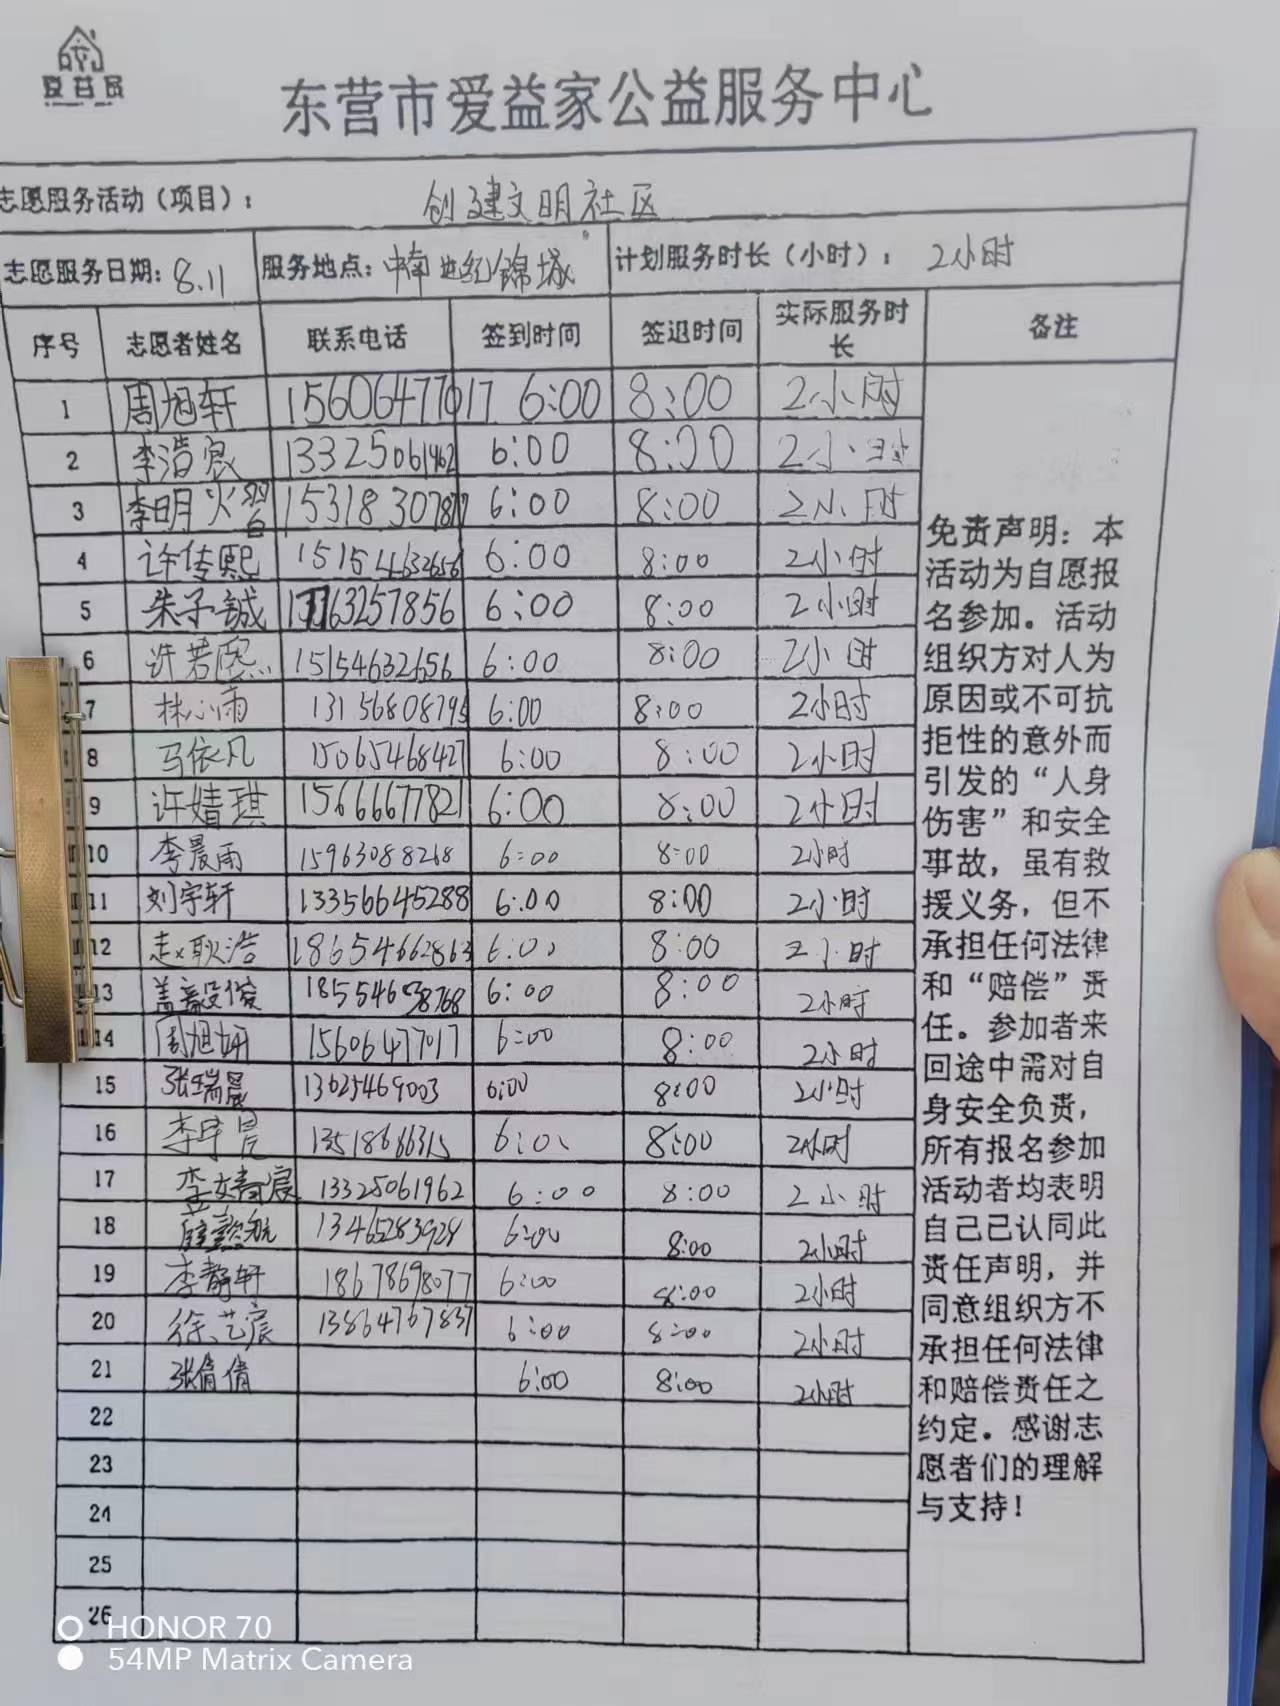 爱益家
东营市爱益家公益服务中心
志愿服务活动（项目）： 创建文明社区
志愿服务日期：8.11 服务地点：中南世纪锦城 计划服务时长（小时）： 2小时
序号 志愿者姓名 联系电话 签到时间 签退时间 实际服务时长 备注
1 周旭轩 15606477017 6:00 8:00 2小时
2 李浩宸 13325061962 6:00 8:00 2小时
3 李明熠 15318307877 6:00 8:00 2小时
4 许传熙 15154632656 6:00 8:00 2小时
5 朱子诚 63257856 6:00 8:00 2小时
6 许若熙 15154632656 6:00 8:00 2小时
7 林心雨 13156808795 6:00 8:00 2小时
8 马依凡 15065468427 6:00 8:00 2小时
9 许婧琪 15666677821 6:00 8:00 2小时
10 李晨雨 15963088268 6:00 8:00 2小时
11 刘宇轩 13356645288 6:00 8:00 2小时
12 赵耿浩 18654662863 6:00 8:00 2小时
13 盖毅俊 6:00 8:00 2小时
14 周旭妍 15606477017 6:00 8:00 2小时
15 张瑞晟 13625469003 6:00 8:00 2小时
16 李 13518686315 8:00 2小时
17 李婧宸 13325061962 6:00 8:00 2小时
18 薛懿航 13465283928 6:00 8:00 2小时
19 李静轩 18678698077 6:00 8:00 2小时
20 徐艺宸 13864767837 6:00 8:00 2小时
21 张倩倩 6:00 8:00 2小时
22
23
24
25
26
免责声明：本
活动为自愿报
名参加。活动
组织方对人为
原因或不可抗
拒性的意外而
引发的“人身
伤害”和安全
事故，虽有救
援义务，但不
承担任何法律
和“赔偿”责
任。参加者来
回途中需对自
身安全负责，
所有报名参加
活动者均表明
自己已认同此
责任声明，并
同意组织方不
承担任何法律
和赔偿责任之
约定。感谢志
愿者们的理解
与支持！
HONOR 70
54MP Matrix Camera